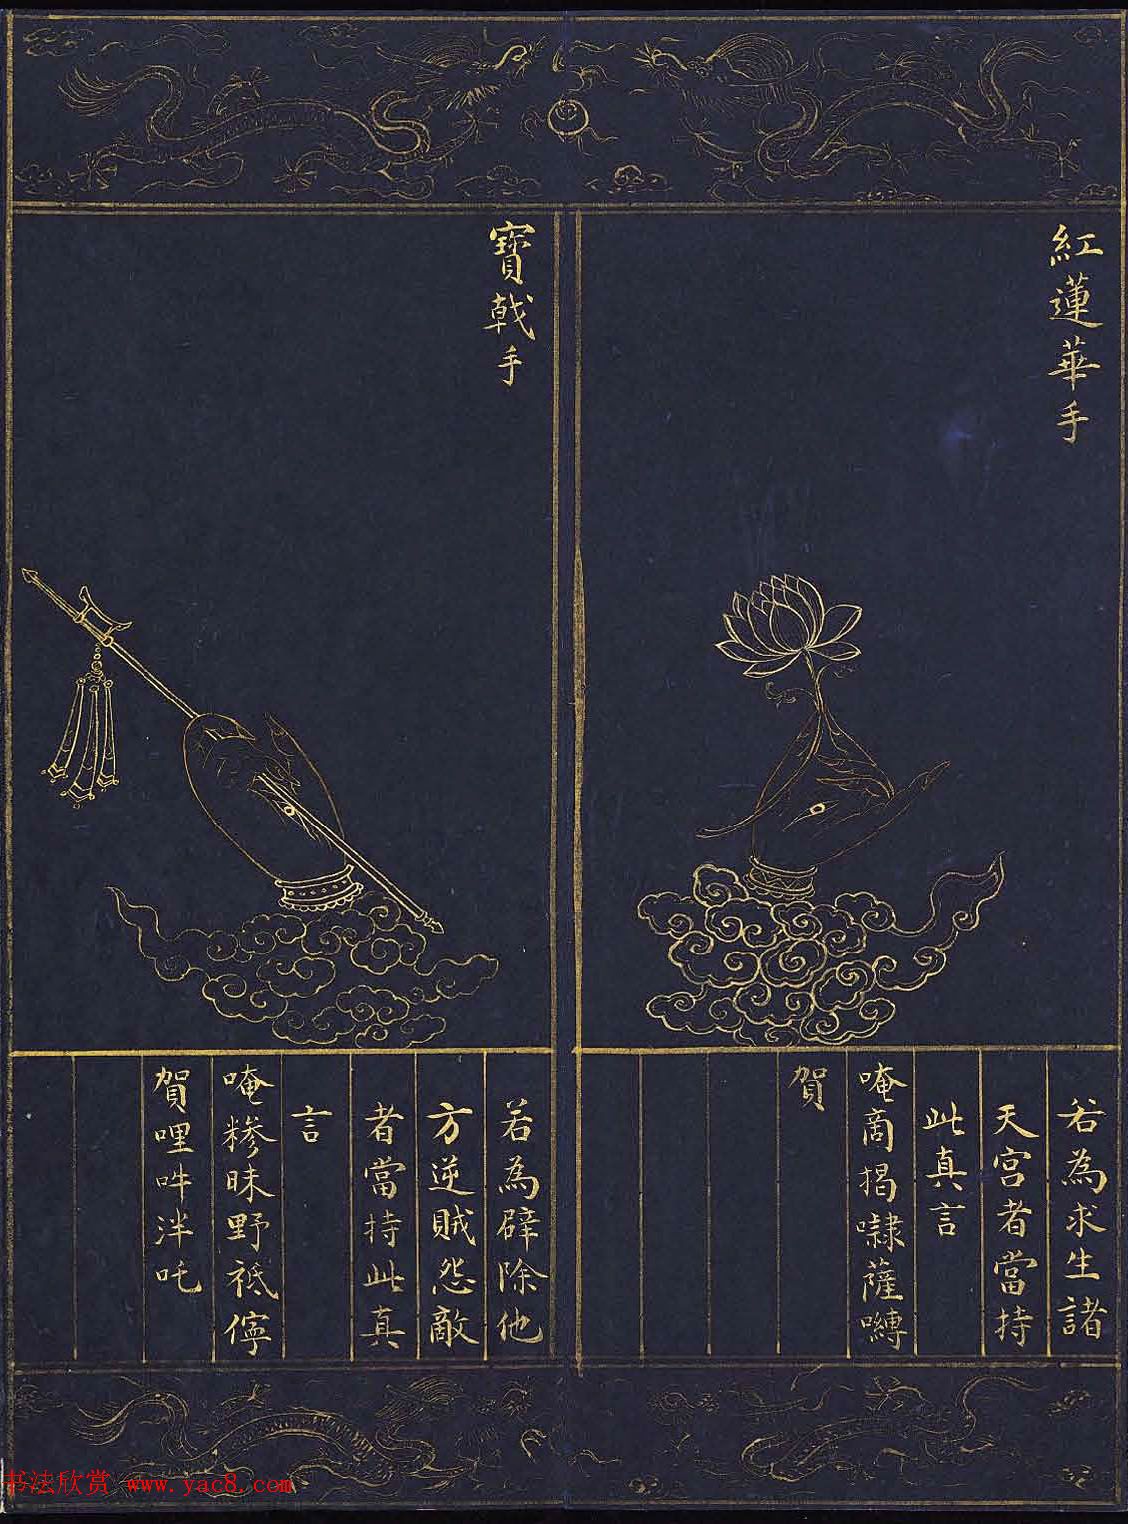 紅蓮華手
若為求生諸
天宮者當持
此真言
唵啇揭㘑薩嚩
賀
寶戟手
若為辟除他
方逆賊怨敵
者當持此真
言
唵糝昧野祗儜
賀哩吽泮吒
书法欣赏 www.yac8.com